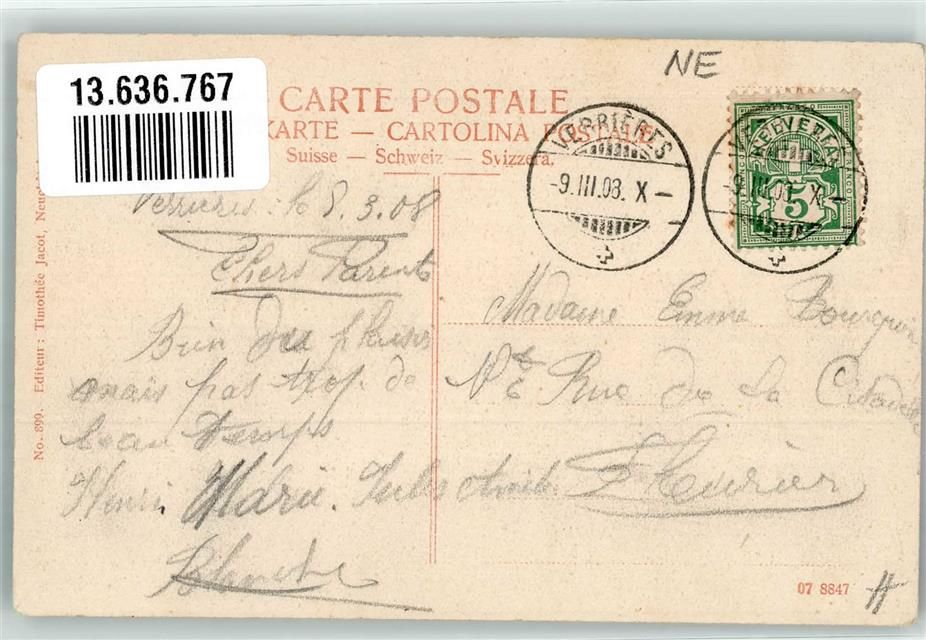 13.636.767
NE
CARTE POSTALE
KARTE — CARTOLINA POSTALE
Suisse — Schweiz — Svizzera.
VERRIÈRES
-9.III.08. X-
-9.III.08. X-
HELVETIA
FRANCO
5
No. 899. Editeur: Timothée Jacot,
Verrières le 8.3.08
Chers Parents
Bien du plaisir
mais pas trop de
beau temps
Henri Marie. Jules
Blanche
Madame Emma Bourquin
Rue de la Citadelle
Fleurier
07 8847